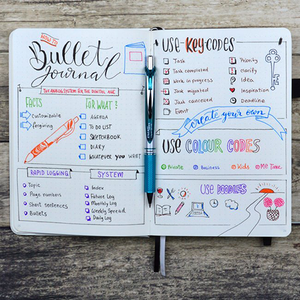 HOW TO
Bullet
JOURNAL
THE ANALOG SYSTEM FOR THE DIGITAL AGE
FACTS
Customizable
Forgiving
FOR WHAT?
AGENDA
TO DO LIST
SKETCHBOOK
DIARY
WHATEVER YOU WANT
RAPID LOGGING
Topic
Page numbers
Short sentences
Bullets
SYSTEM
Index
Future Log
Monthly Log
Weekly Spread
Daily Log
USE KEY CODES
Task
Task completed
Work in progress
Task migrated
Task canceled
Event
Priority
Clarify
Idea
Inspiration
Deadline
Create your own
USE COLOUR CODES
Private
Business
Kids
ME Time
USE DOODLES